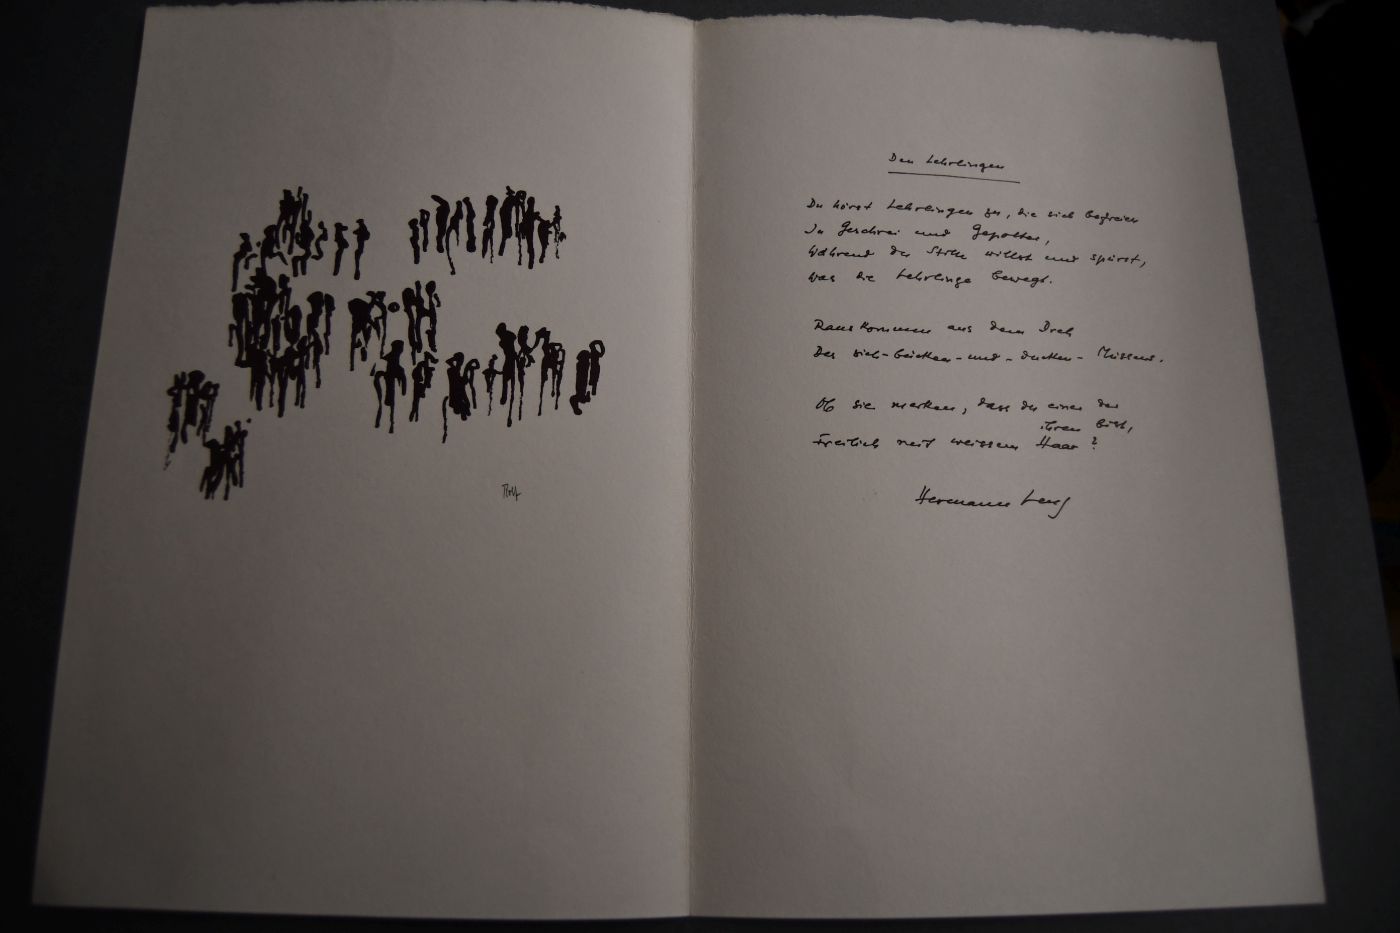 Den Lehrlingen
Du hörst Lehrlingen zu, die sich befreien
In Geschrei und Gepolter,
Während du Stille willst und spürst,
Was die Lehrlinge bewegt.
Rauskommen aus dem Dreh
Des sich-bücken-und-ducken-Müssens.
Ob sie merken, dass du einer der
ihren bist,
Freilich mit weissem Haar?
Hermann Lenz